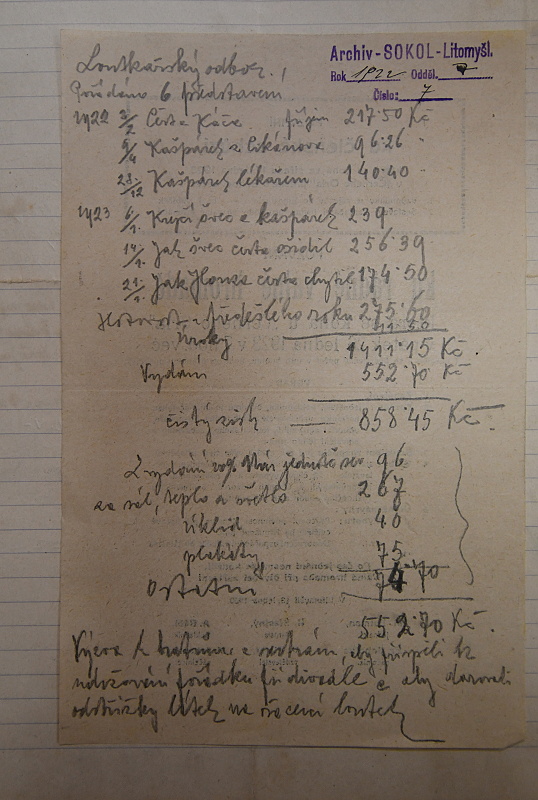 Archiv-SOKOL-Litomyšl.
Rok 1922 Odděl.
Číslo: 7
Loutkářský odbor.
Pořádáno 6 představení
1922 Čert a Káča příjem 217·50 Kč
Kašpárek z 96·26
28/12 Kašpárek lékařem 140·40
1923 6/1. Krejčí švec a kašpárek 239
14/1. Jak švec čerta ošidil 256 39
21/1. Jak Honza čerta chytil 174·50
Hotovost předešlého roku 275·60
úroky 11 50
1411·15 Kč.
Vydání 552·70 Kč
čistý zisk — 858·45 Kč.
Z vydání 20% jednotě 96
za sál, teplo a světlo 267
úklid 40
plakáty 75
Ostatní 74 70
552 70 Kč.
Výzva k bratřím a sestrám, aby přispěli k
udržování pořádku při divadle a aby darovali
odstřižky látek na loutek